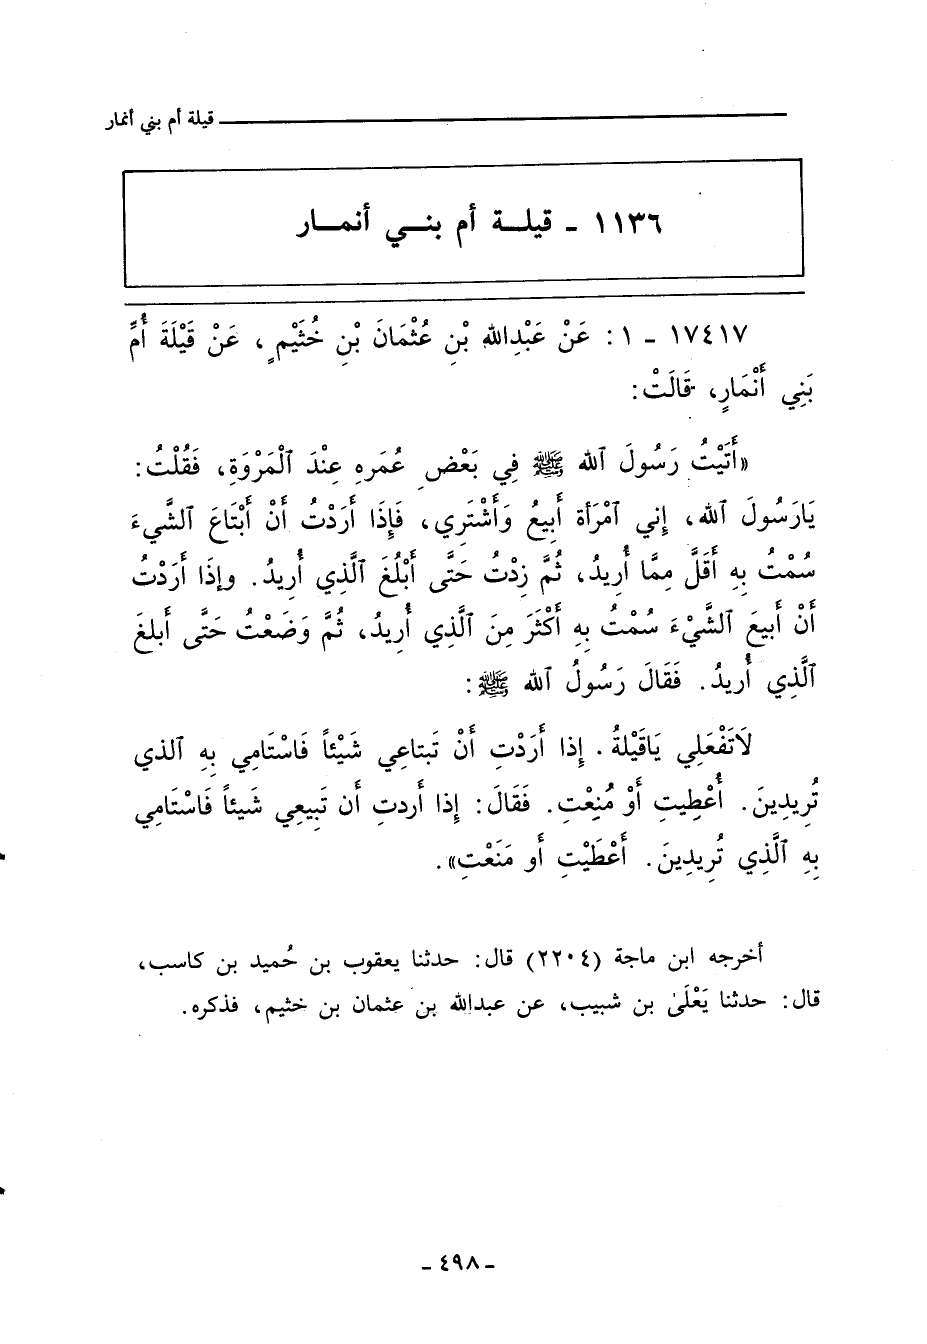 قيلة أم بني أنمار
١١٣٦ - قيلـــة أم بنـــي أنمـــار
١٧٤١٧ - ١ : عَنْ عَبْدِاللهِ بْنِ عُثْمَانَ بْنِ خُثَيْمٍ، عَنْ قَيْلَةَ أُمِّ
بَنِي أَنْمَارٍ، قَالَتْ:
«أَتَيْتُ رَسُولَ اللهِ ﷺ فِي بَعْضِ عُمَرِهِ عِنْدَ الْمَرْوَةِ، فَقُلْتُ:
يَارَسُولَ اللهِ، إِنِي آمْرَأة أَبِيعُ وَأَشْتَرِي، فَإِذَا أَرَدْتُ أَنْ أَبْتَاعَ الشَّيءَ
سُمْتُ بِهِ أَقَلَّ مِمَّا أُرِيدُ، ثُمَّ زِدْتُ حَتَّى أَبْلُغَ الَّذِي أُرِيدُ. وإذَا أَرَدْتُ
أَنْ أَبِيعَ الشَّيْءَ سُمْتُ بِهِ أَكْثَرَ مِنَ الَّذِي أُرِيدُ، ثُمَّ وَضَعْتُ حَتَّى أَبلغَ
الَّذِي أُرِيدُ. فَقَالَ رَسُولُ اللهِ ﷺ:
لَاتَفْعَلِي يَاقَيْلَةُ. إِذا أَرَدْتِ أَنْ تَبتاعِي شَيْئاً فَاسْتَامِي بِهِ الذي
تُرِيدِينَ. أُعْطِيتِ أَوْ مُنِعْتِ. فَقَالَ: إِذا أَردتِ أَن تَبِيعِي شَيئاً فَاسْتَامِي
بِهِ الَّذِي تُرِيدِينَ. أَعْطَيْتِ أَو مَنَعْتِ».
أخرجه ابن ماجة (٢٢٠٤) قال: حدثنا يعقوب بن حُميد بن كاسب،
قال: حدثنا يَعْلَىٰ بن شبيب، عن عبدالله بن عثمان بن خثيم، فذكره.
- ٤٩٨ -